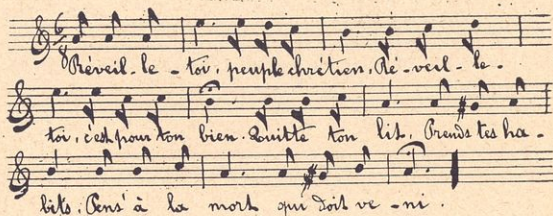 Réveil-le-toi, peuple chrétien, Ré-veil-le-
toi, c'est pour ton bien. Quitte ton lit, Prends tes ha-
bits, Pens' à la mort qui doit ve-ni.